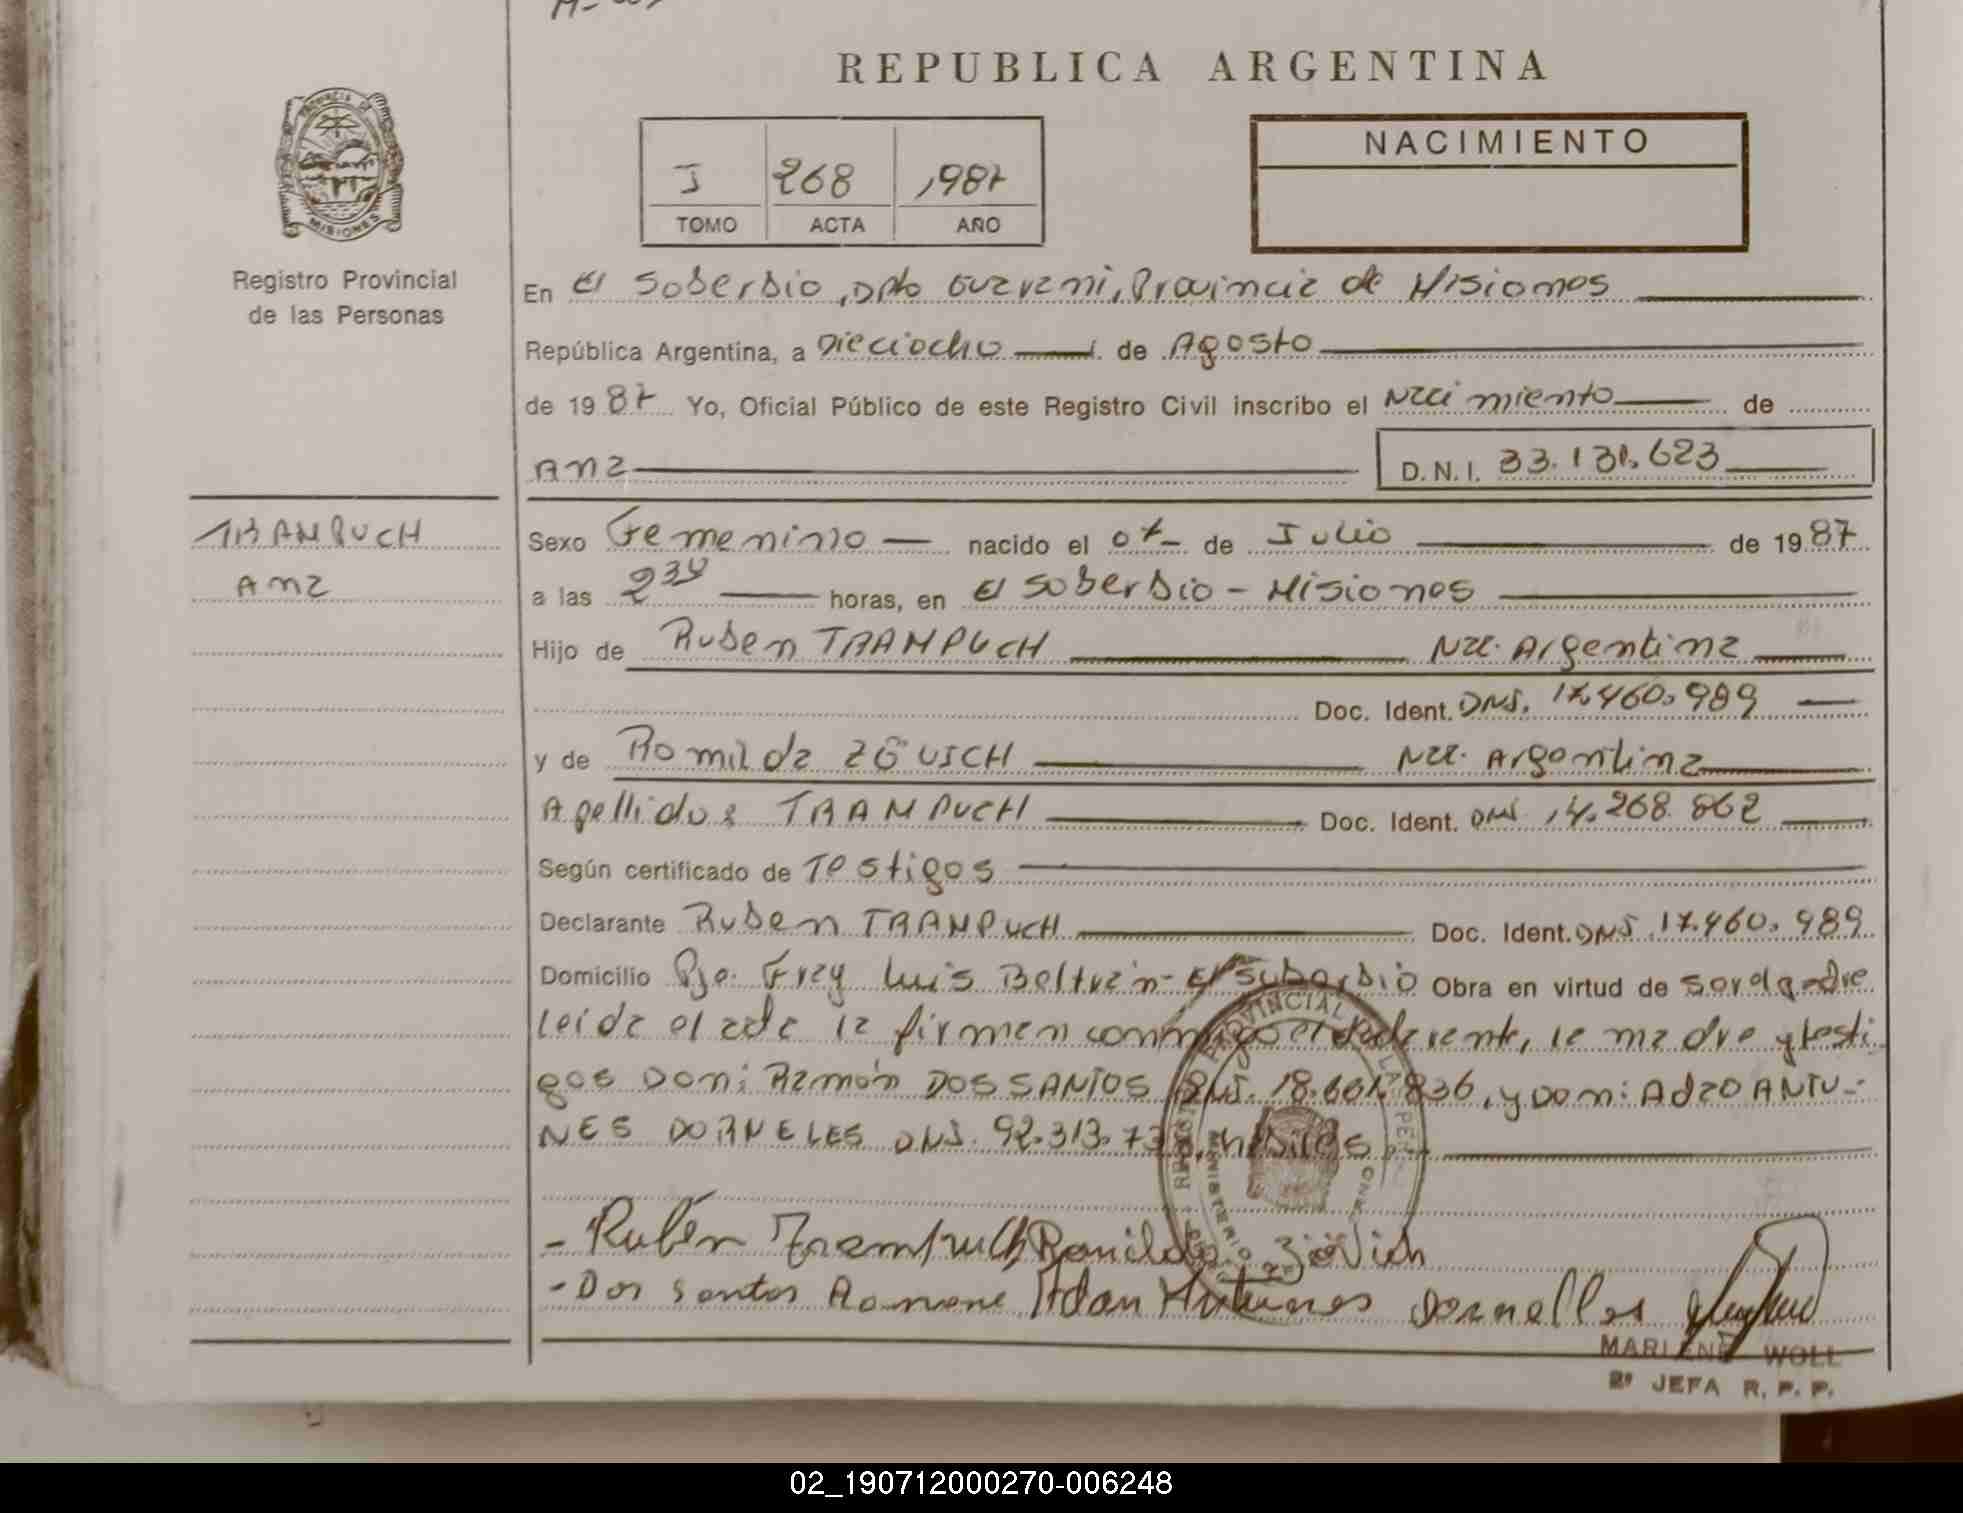 REPUBLICA ARGENTINA
PROVINCIA DE
MISIONES
I 268 1987
TOMO ACTA AÑO
NACIMIENTO
Registro Provincial
de las Personas
En El Soberbio, Dpto Guarani, Provincia de Misiones
República Argentina, a Dieciocho de Agosto
de 1987 Yo, Oficial Público de este Registro Civil inscribo el Nacimiento de
Ana D.N.I. 33.131.623
TRAMPUCH
Ana
Sexo Femenino nacido el 07 de Julio de 1987
a las horas, en El Soberbio - Misiones
Hijo de Ruben TRAMPUCH Nac. Argentina
Doc. Ident. DNI. 17.460.989
y de Romilda Nac. Argentina
Apellido: TRAMPUCH Doc. Ident. DNI 14.268.862
Según certificado de Testigos
Declarante Ruben TRAMPUCH Doc. Ident. DNI 17.460.989
Domicilio Pje. Fray Luis Beltran - El Soberbio Obra en virtud de
leida el acta la firman conmigo el declarante, la madre y testi
gos Don: Ramón DOS SANTOS DNI. 18.601.836, y Don: Adao ANTU-
NES DORNELES DNI. 92.313.73 habiles
REGISTRO PROVINCIAL DE LAS PERSONAS
MINISTERIO DE GOBIERNO
- Rubén Trampuch Romilda
- Dos Santos Ramone Adan Antunes Dornelles
MARLENE WOLL
2º JEFA R. P. P.
02_190712000270-006248